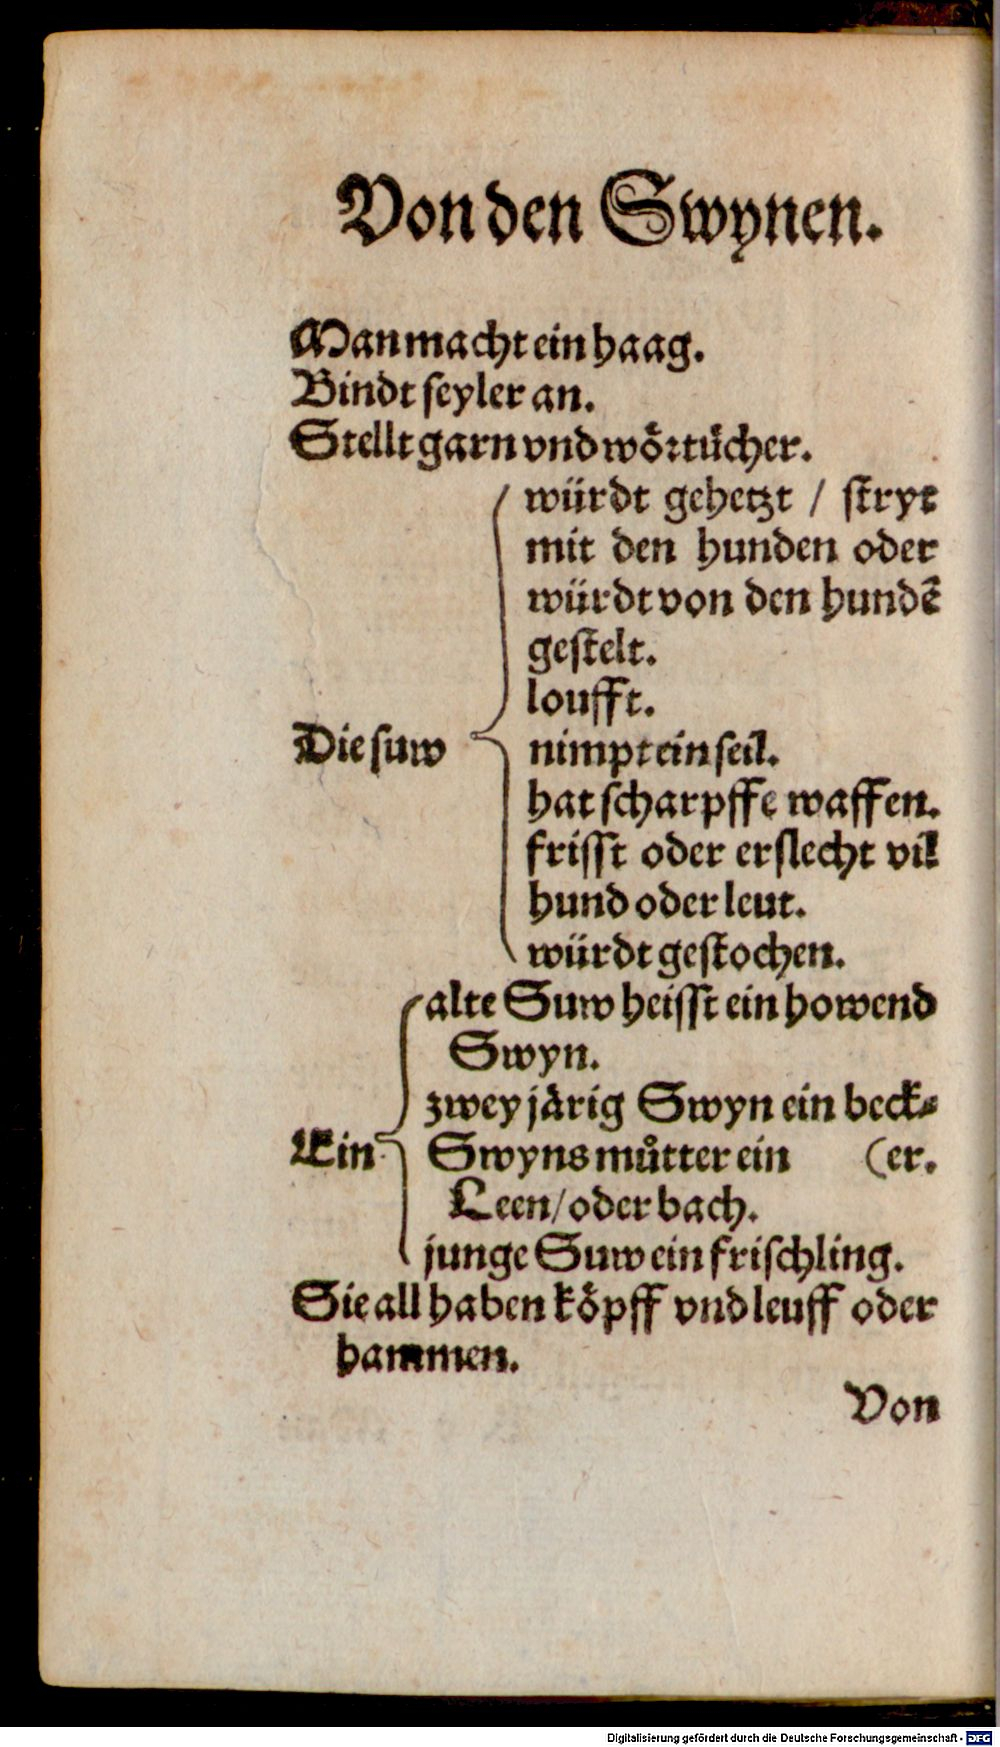 Von den Swynen.
Man macht ein haag.
Bindt seyler an.
Stellt garn vnd wörtücher.
würdt gehetzt / stryt
mit den hunden oder
würdt von den hundē
gestelt.
loufft.
Die suw
nimpt ein seil.
hat scharpffe waffen.
frisst oder erslecht vil
hund oder leut.
würdt gestochen.
alte Suw heisst ein howend
Swyn.
zwey järig Swyn ein beck-
Ein
Swyns můtter ein (er.
Leen/ oder bach.
junge Suw ein frischling.
Sie all haben köpff vnd leuff oder
hammen.
Von
Digitalisierung gefördert durch die Deutsche Forschungsgemeinschaft - DFG